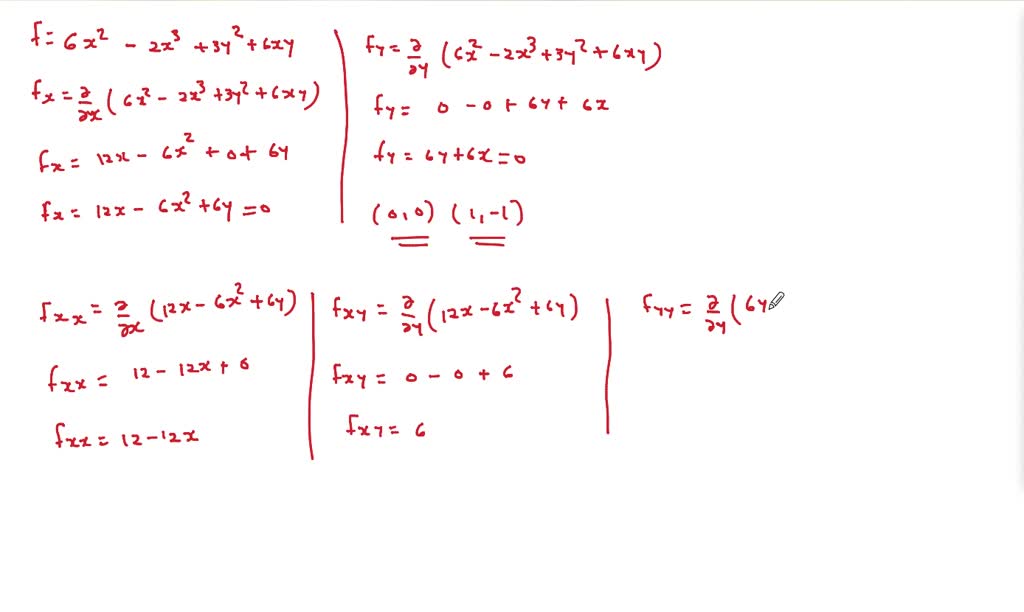 f = 6x² - 2x³ + 3y² + 6xy
fx = ∂/∂x (6x² - 2x³ + 3y² + 6xy)
fx = 12x - 6x² + 0 + 6y
fx = 12x - 6x² + 6y = 0
fy = ∂/∂y (6x² - 2x³ + 3y² + 6xy)
fy = 0 - 0 + 6y + 6x
fy = 6y + 6x = 0
(0,0) (1,-1)
fxx = ∂/∂x (12x - 6x² + 6y)
fxx = 12 - 12x + 0
fxx = 12 - 12x
fxy = ∂/∂y (12x - 6x² + 6y)
fxy = 0 - 0 + 6
fxy = 6
fyy = ∂/∂y (6y